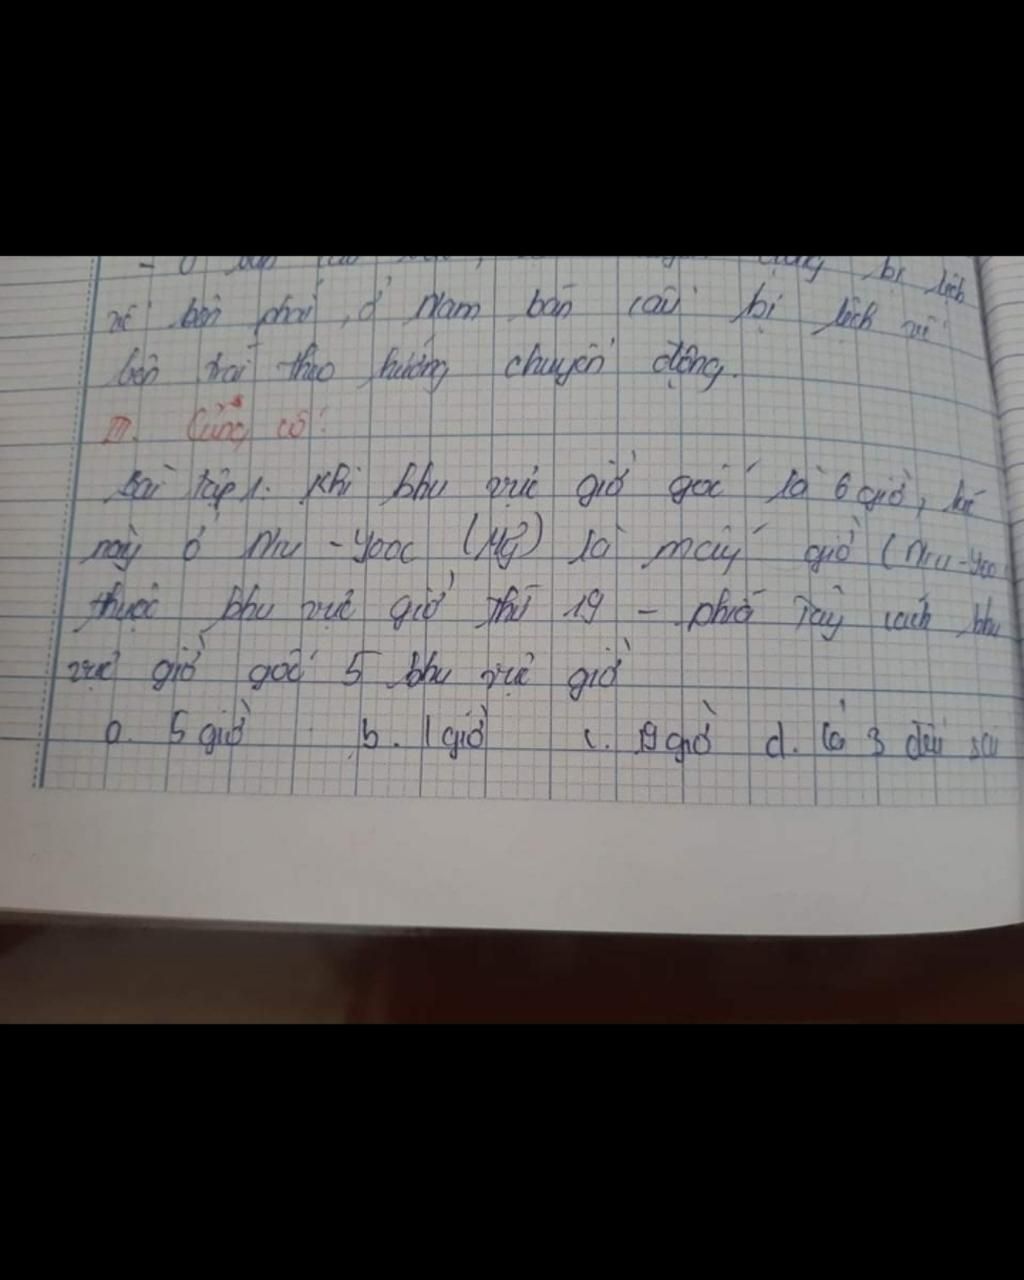 bị lệch
về bên phải, ở Nam bán cầu bị lệch về
bên trái theo hướng chuyển động.
III. Củng cố:
Bài tập 1. Khi khu vực giờ gốc là 6 giờ, lúc
này ở Niu-yooc (Mỹ) là mấy giờ (Niu-yooc
thuộc khu vực giờ thứ 19 - phía Tây cách khu
vực giờ gốc 5 khu vực giờ
a. 5 giờ b. 1 giờ c. 19 giờ d. Cả 3 đều sai